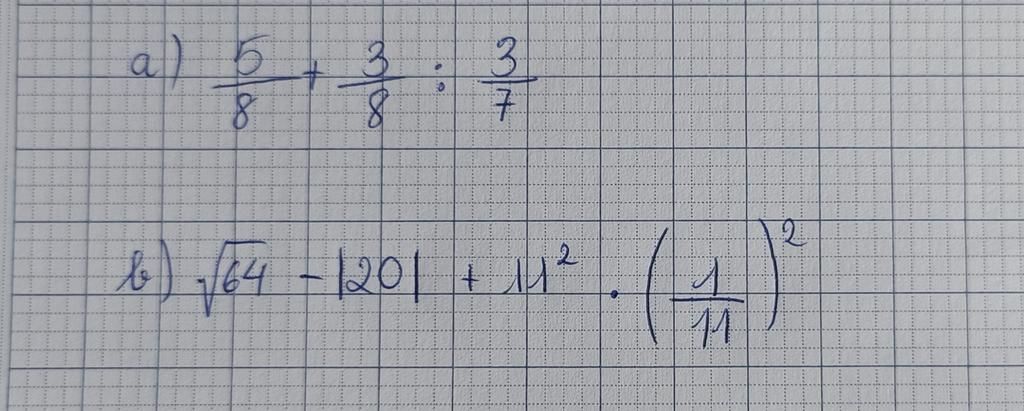 a) 5/8 + 3/8 : 3/7
b) √64 - |20| + 11² · (1/11)²